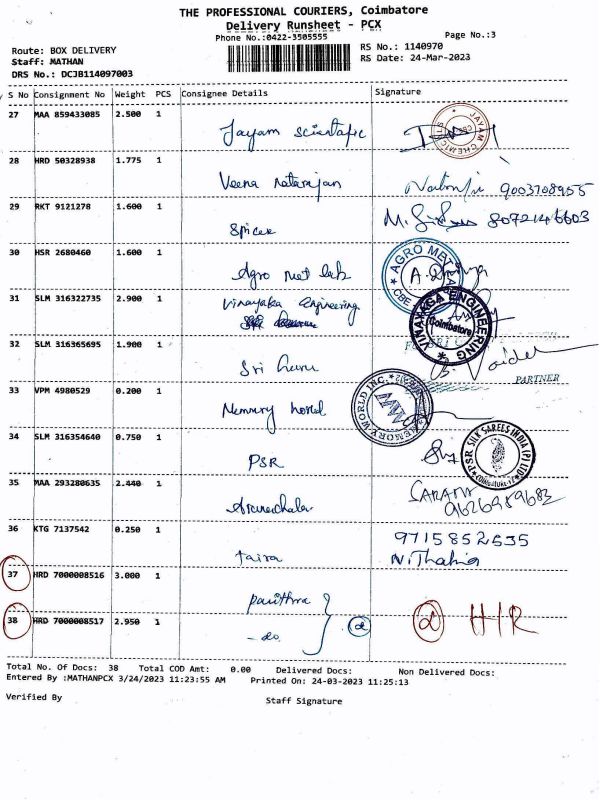 THE PROFESSIONAL COURIERS, Coimbatore
Delivery Runsheet - PCX
Phone No.:0422-3505555
Page No.:3
Route: BOX DELIVERY
RS No.: 1140970
Staff: MATHAN
RS Date: 24-Mar-2023
DRS No.: DCJB114097003
S No Consignment No Weight PCS Consignee Details Signature
27 MAA 859433085 2.500 1
Jayam scientafic
JAYAM CHEMICALS
28 HRD 50328938 1.775 1
Veena natarajan
9003708955
29 RKT 9121278 1.600 1
Spicer
8072146603
30 HSR 2680460 1.600 1
Agro met lab
AGRO MET LAB
CBE
31 SLM 316322735 2.900 1
Vinayaka engineering
VINAYAGA ENGINEERING
Coimbatore
32 SLM 316365695 1.900 1
Sri Guru
PARTNER
33 VPM 4980529 0.200 1
Memury world
MEMORY WORLD INC.
MW
34 SLM 316354640 0.750 1
PSR
PSR SILK SAREES INDIA (P) LTD
35 MAA 293280635 2.440 1
Arunachala
9626989682
36 KTG 7137542 0.250 1
taira
9715852535
N. Thahira
37 HRD 7000008516 3.000 1
pavithra
38 HRD 7000008517 2.950 1
- do.
HIR
Total No. Of Docs: 38 Total COD Amt: 0.00 Delivered Docs: Non Delivered Docs:
Entered By :MATHANPCX 3/24/2023 11:23:55 AM Printed On: 24-03-2023 11:25:13
Verified By
Staff Signature